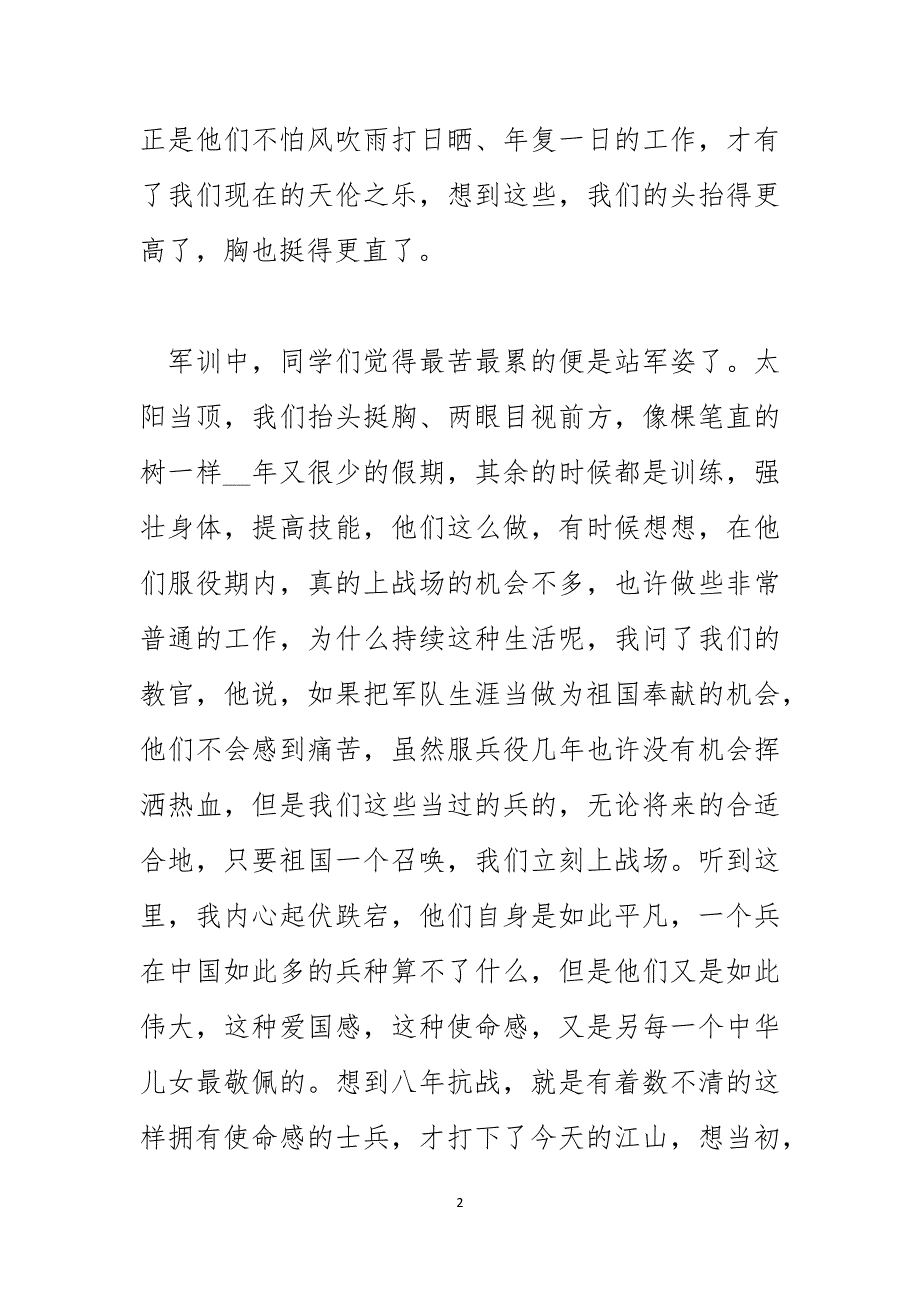 正是他们不怕风吹雨打日晒、年复一日的工作，才有
了我们现在的天伦之乐，想到这些，我们的头抬得更
高了，胸也挺得更直了。
军训中，同学们觉得最苦最累的便是站军姿了。太
阳当顶，我们抬头挺胸、两眼目视前方，像棵笔直的
树一样__年又很少的假期，其余的时候都是训练，强
壮身体，提高技能，他们这么做，有时候想想，在他
们服役期内，真的上战场的机会不多，也许做些非常
普通的工作，为什么持续这种生活呢，我问了我们的
教官，他说，如果把军队生涯当做为祖国奉献的机会，
他们不会感到痛苦，虽然服兵役几年也许没有机会挥
洒热血，但是我们这些当过的兵的，无论将来的合适
合地，只要祖国一个召唤，我们立刻上战场。听到这
里，我内心起伏跌宕，他们自身是如此平凡，一个兵
在中国如此多的兵种算不了什么，但是他们又是如此
伟大，这种爱国感，这种使命感，又是另每一个中华
儿女最敬佩的。想到八年抗战，就是有着数不清的这
样拥有使命感的士兵，才打下了今天的江山，想当初，
2